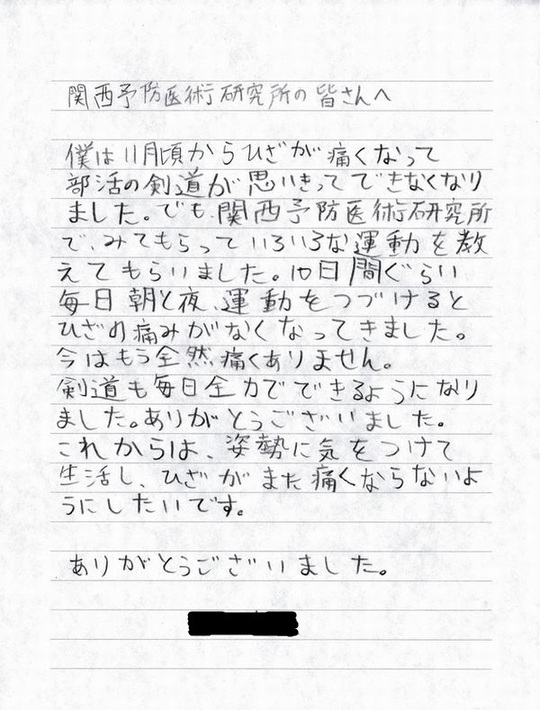 関西予防医術研究所の皆さんへ
僕は11月頃からひざが痛くなって
部活の剣道が思いきってできなくなり
ました。でも、関西予防医術研究所
で、みてもらっていろいろな運動を教
えてもらいました。10日間ぐらい
毎日朝と夜、運動をつづけると
ひざの痛みがなくなってきました。
今はもう全然痛くありません。
剣道も毎日全力でできるようになり
ました。ありがとうございました。
これからは、姿勢に気をつけて
生活し、ひざがまた痛くならないよ
うにしたいです。
ありがとうございました。